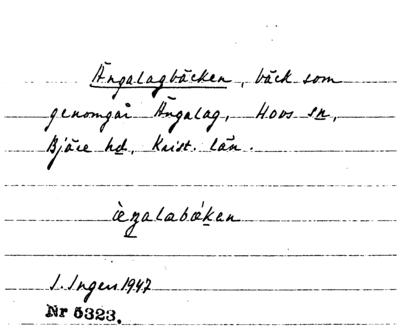 Ängalagbäcken, bäck som
genomgår Ängalag, Hovs sn,
Bjäre hd, Krist. län.
I. Ingers 1947
Nr 5323.